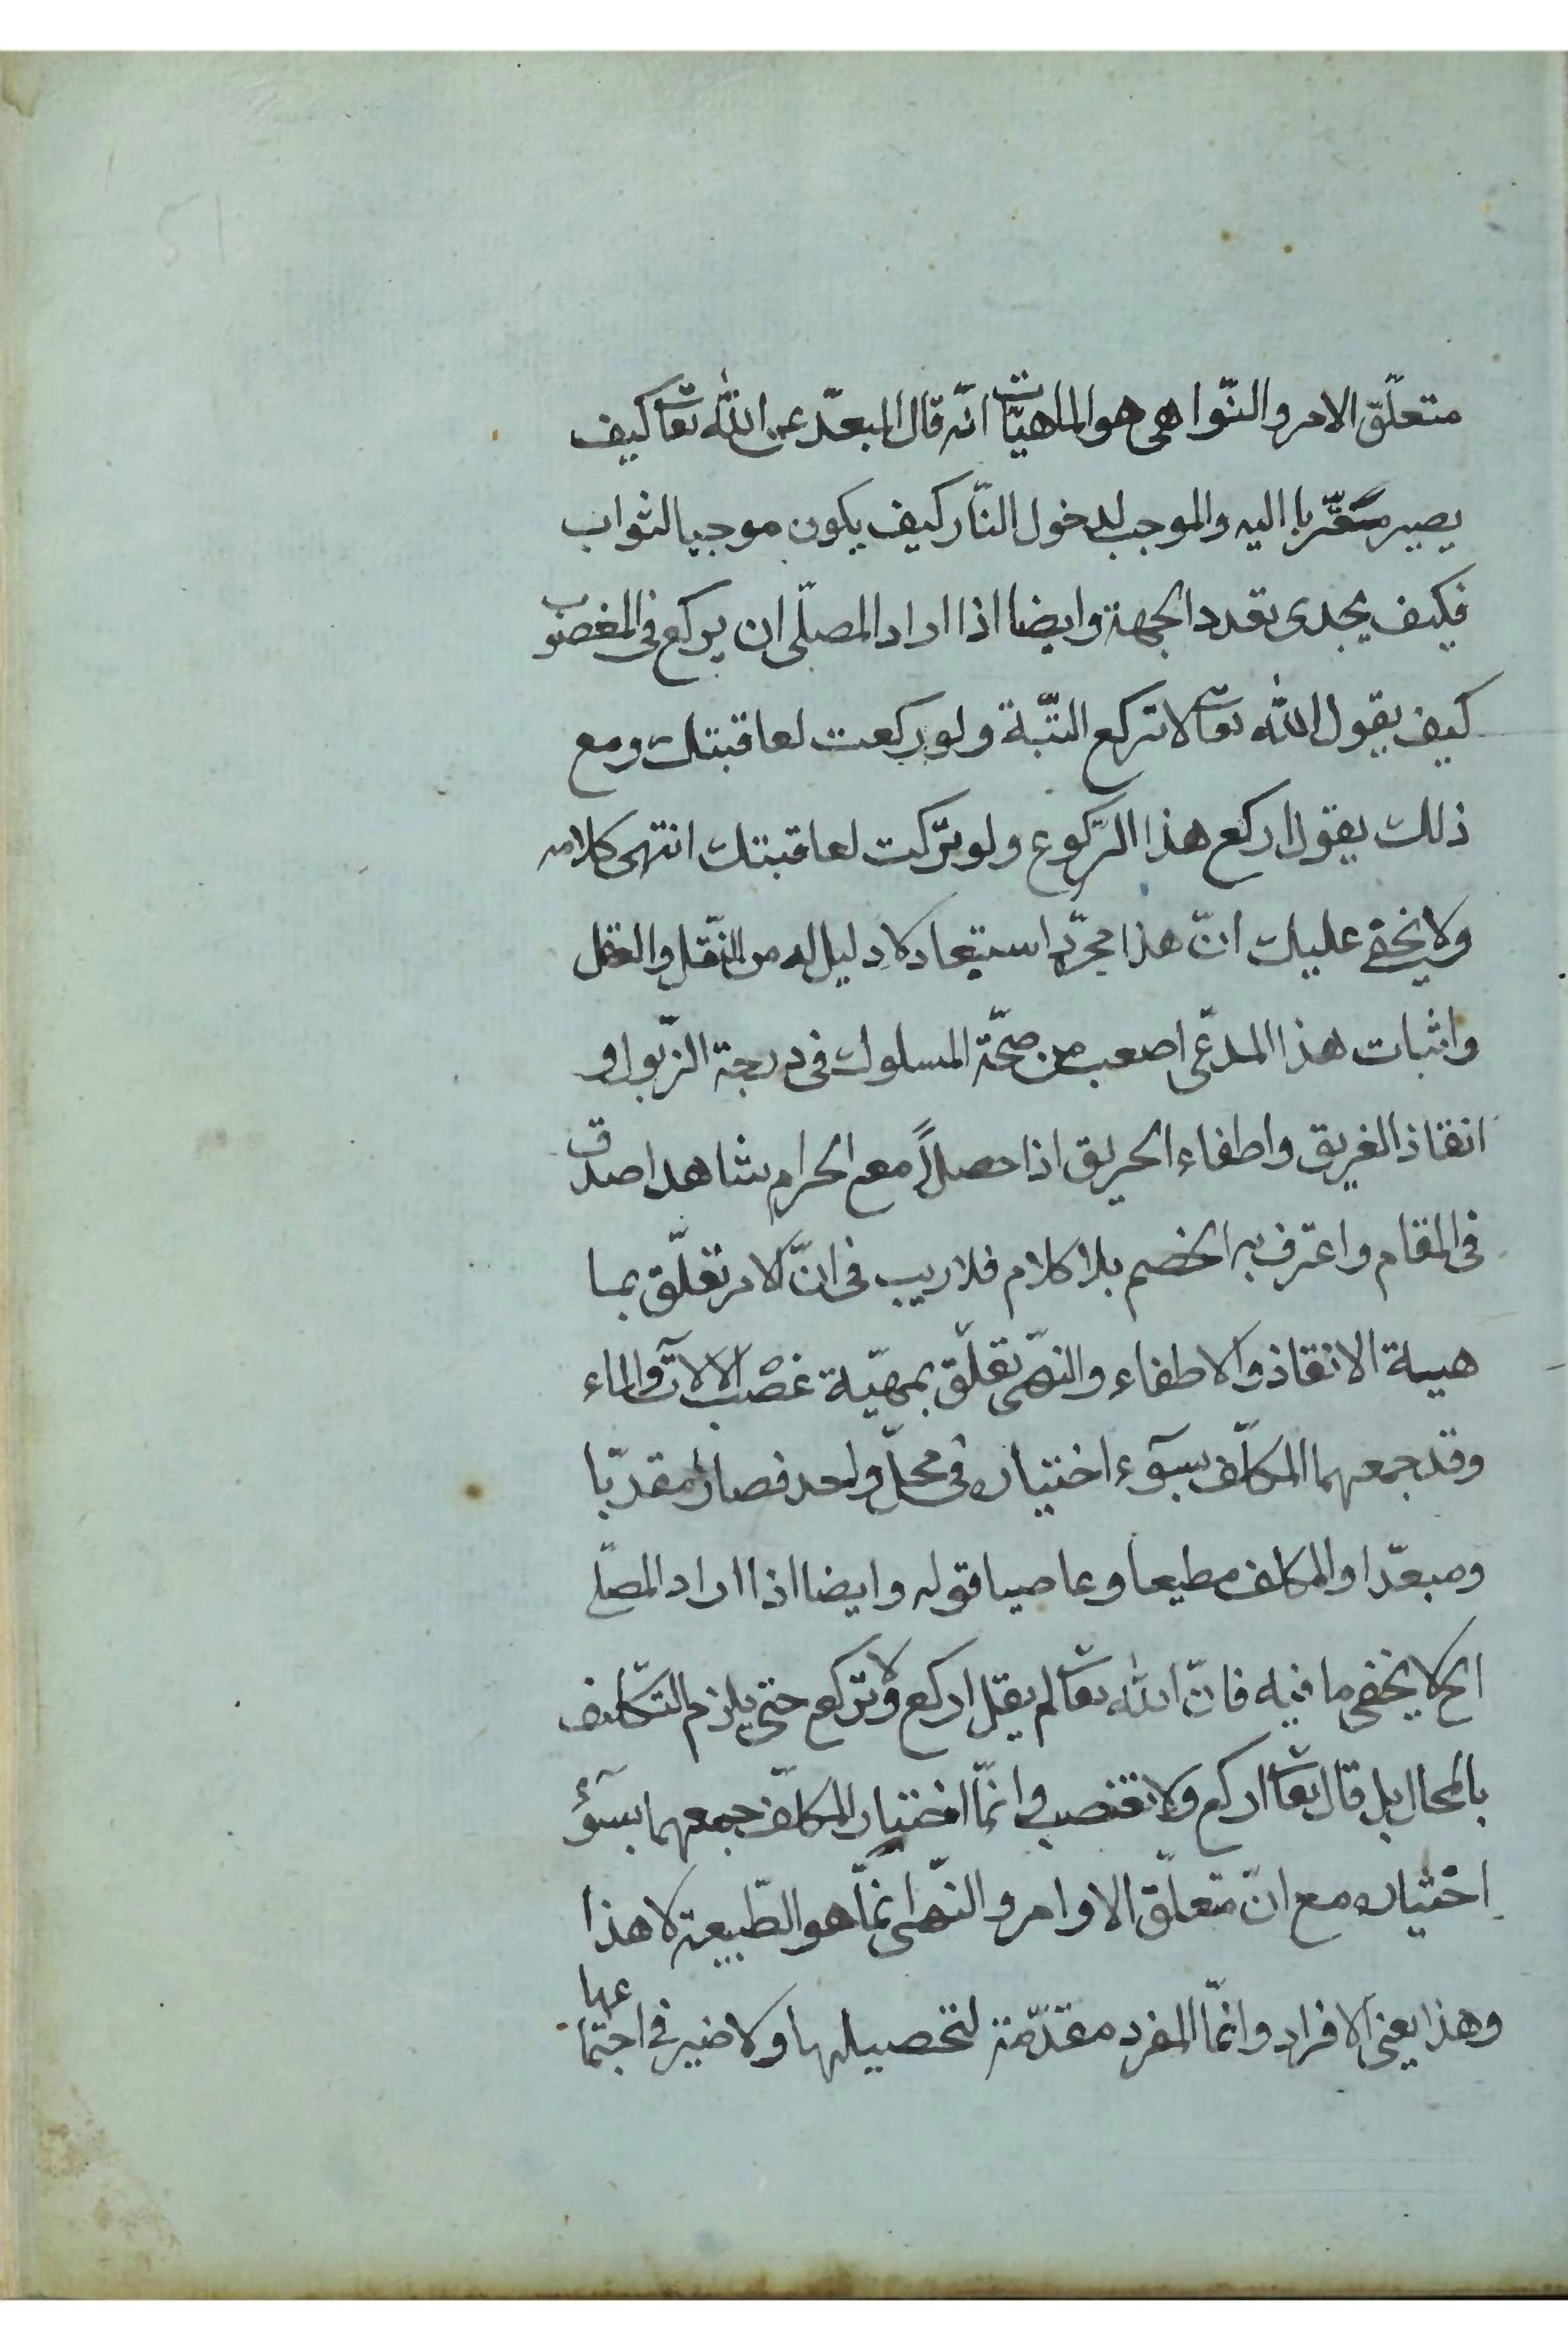 متعلّق الامر والنّواهى هو الماهيّات انّه قال المبعّد عن الله تعا كيف
يصير مقرّبا اليه والموجب لدخول النّار كيف يكون موجبا لثواب
فكيف يجدى تعدد الجهة وايضا اذا اراد المصلّى ان يركع فى المغصوب
كيف يقول الله تعا لا تركع البتّة ولو ركعت لعاقبتك ومع
ذلك يقول اركع هذا الرّكوع ولو تركت لعاقبتك انتهى كلامه
ولا يخفى عليك انّ هذا مجرّد استبعاد لا دليل له من النّقل والعقل
واثبات هذا المدّعى اصعب من صحّة السلوك فى درجة الزّبول او
انقاذ الغريق واطفاء الحريق اذا حصلاً مع الحرام شاهد اصدق
فى المقام واعترف به الخصم بلا كلام فلا ريب فى انّ الامر تعلّق بما
هية الانقاذ والاطفاء والنّهى تعلّق بمهيّة غصب الالات والماء
وقد جمعهما المكلّف بسوء اختياره فى محلّ واحد فصار مقرّبا
ومبعّدا والمكلف مطيعا وعاصيا قوله وايضا اذا اراد المصلّى
الخ لا يخفى ما فيه فانّ الله تعا لم يقل اركع ولا تركع حتى يلزم التكليف
بالمحال بل قال تعا اركع ولا تغصب وانّما اختيار المكلّف جمعهما بسوء
اختياره مع انّ متعلّق الاوامر والنّهى انمّا هو الطّبيعة لا هذا
وهذا يعنى الافراد وانّما المفرد مقدّمة لتحصيلها ولا ضير فى اجتماعها